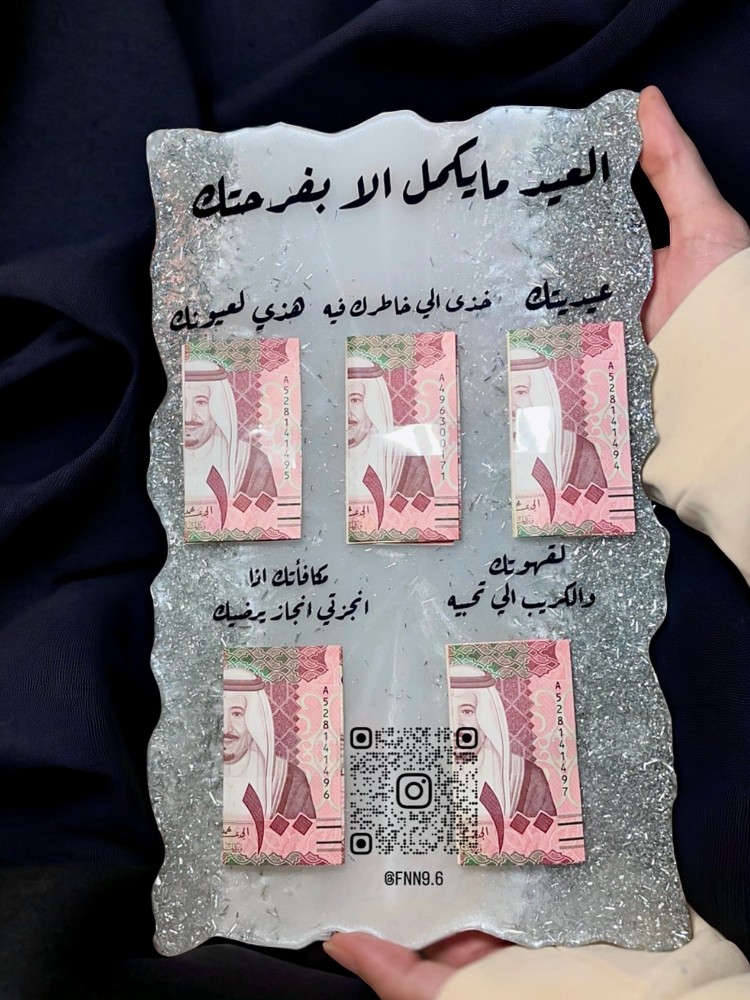 العيد مايكمل الا بفرحتك
عيديتك
خذي الي خاطرك فيه
هذي لعيونك
A528141494
١٠٠
A496300171
١٠٠
A528141495
١٠٠
لقهوتك
والكريب الي تحبيه
مكافأتك اذا
انجزتي انجاز يرضيك
A528141497
١٠٠
A528141496
١٠٠
@FNN9.6